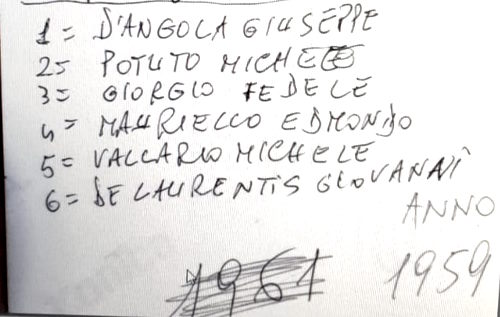 1= D'ANGOLA GIUSEPPE
2= POTUTO MICHELE
3= GIORGIO FEDELE
4= MAURIELLO EDMONDO
5= VALLARIO MICHELE
6= DE LAURENTIS GIOVANNI
ANNO
1961 1959